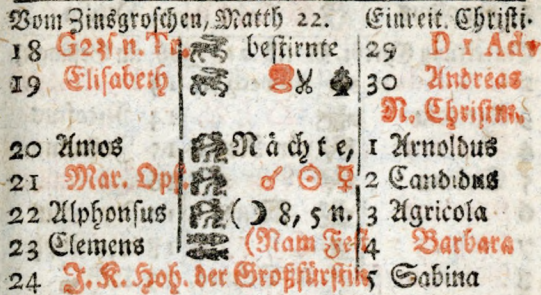 Vom Zinsgroschen, Matth 22. Einreit. Christi.
18 G23s n. Tr. bestirnte 29 D 1 Adv
19 Elisabeth 30 Andreas
N. Christm.
20 Amos Nächte, 1 Arnoldus
21 Mar. Opf. ♂ ☉ ♀ 2 Candidus
22 Alphonsus (☽ 8, 5 n. 3 Agricola
23 Clemens (Nam Fest 4 Barbara
24 J. K. Hoh. der Großfürstin 5 Sabina